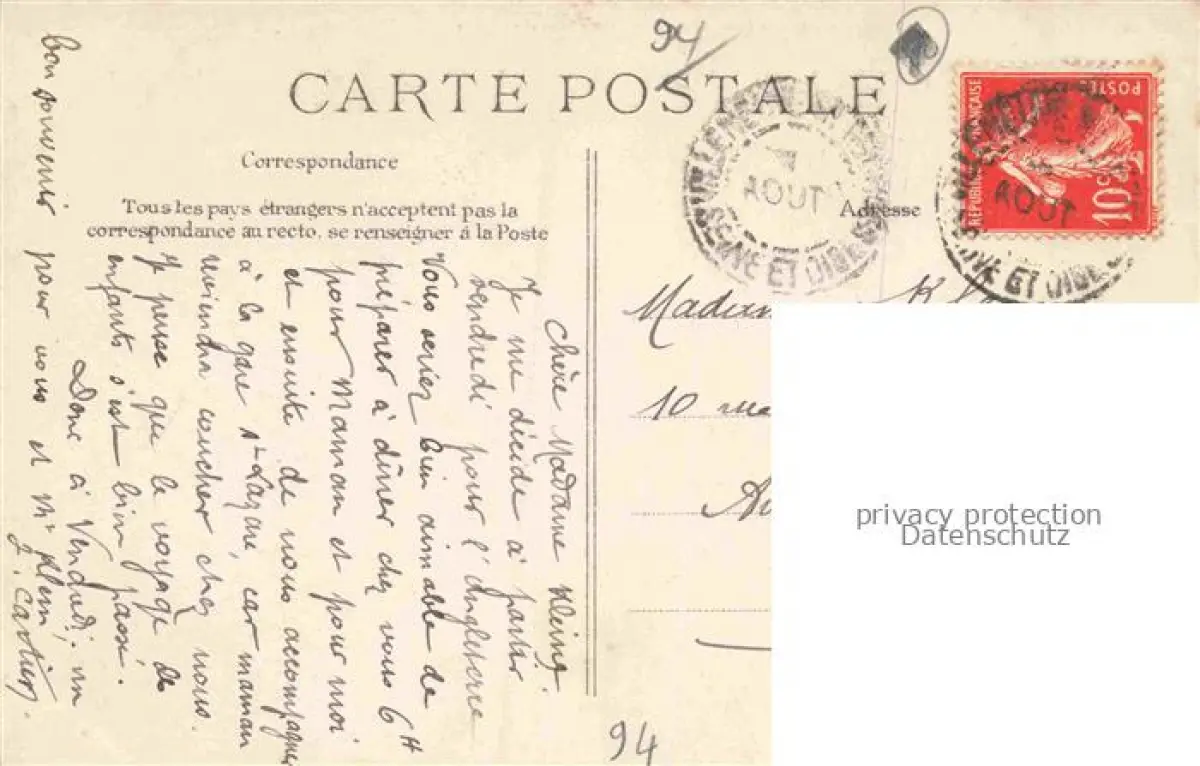 94
CARTE POSTALE
Correspondance
Tous les pays étrangers n'acceptent pas la
correspondance au recto, se renseigner à la Poste
Adresse
Chère Madame Klein,
Je me décide à partir
vendredi pour l'Angleterre
Vous seriez bien aimable de
préparer à dîner chez vous 6H
pour Maman et pour moi
et ensuite de nous accompagner
à la gare St Lazare, car maman
reviendra coucher chez nous.
Je pense que le voyage de
enfants s'est bien passé.
Donc à Vendredi, un
bon souvenir pour vous et Mr Klein
J. Cartier.
Madam
10 rue
94
AOUT
SEINE ET OISE
REPUBLIQUE FRANÇAISE
POSTES
10c
AOUT
ET OISE
privacy protection
Datenschutz